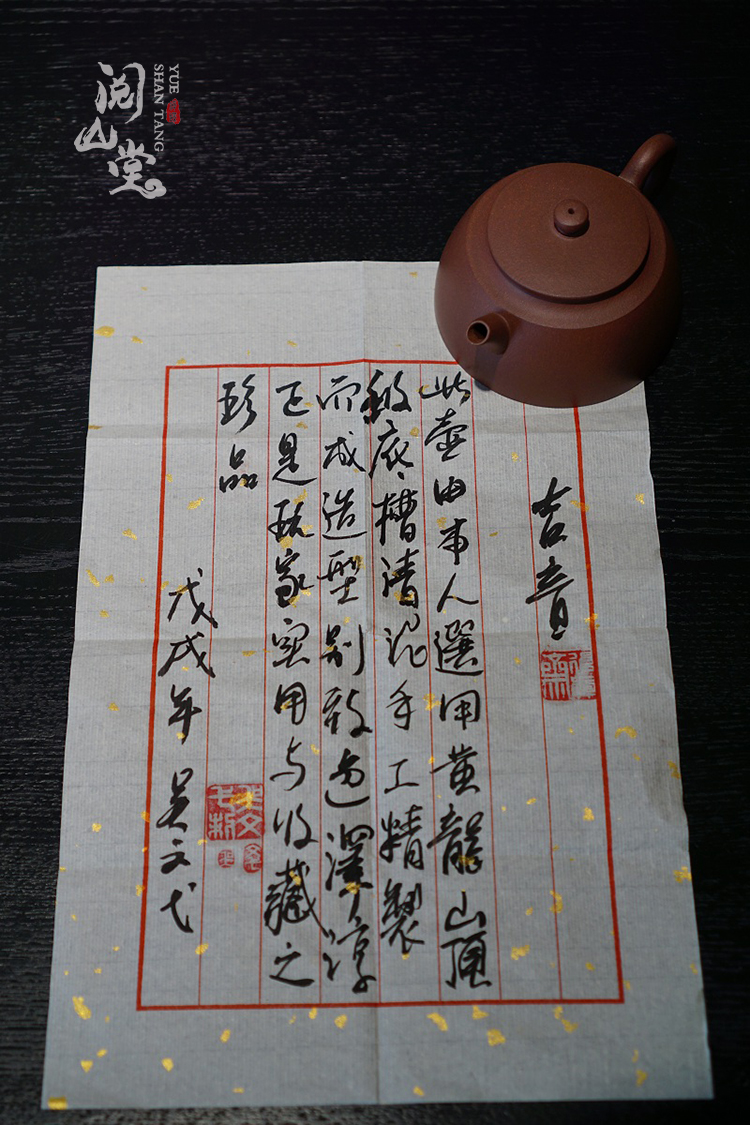 阅山堂
YUE
SHAN TANG
吉音
此壶由本人選用黄龍山頂
級底槽清泥手工精製
而成造型别致色澤淳
正是玩家实用与收藏之
珍品
戊戌年 吴文弋